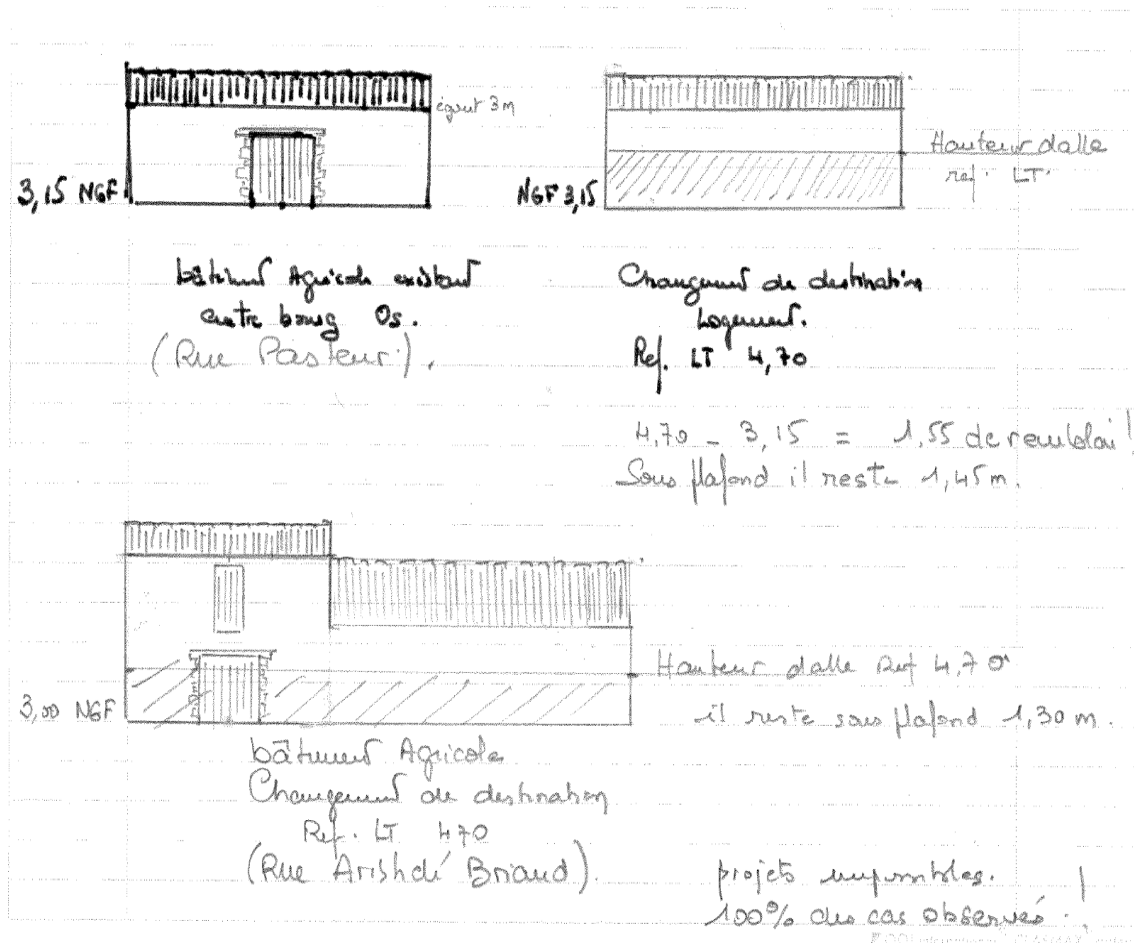 égout 3m
3,15 NGF
NGF 3,15
Hauteur dalle
ref. LT.
bâtiment Agricole existant
centre bourg Os.
(Rue Pasteur).
Changement de destination
Logement.
Ref. LT 4,70
4,70 - 3,15 = 1,55 de remblai !
Sous plafond il reste 1,45m.
Hauteur dalle Ref 4,70
3,00 NGF
il reste sous plafond 1,30 m.
bâtiment Agricole
Changement de destination
Ref. LT 470
(Rue Aristidé Briand).
projets impossibles.
100% des cas observés !